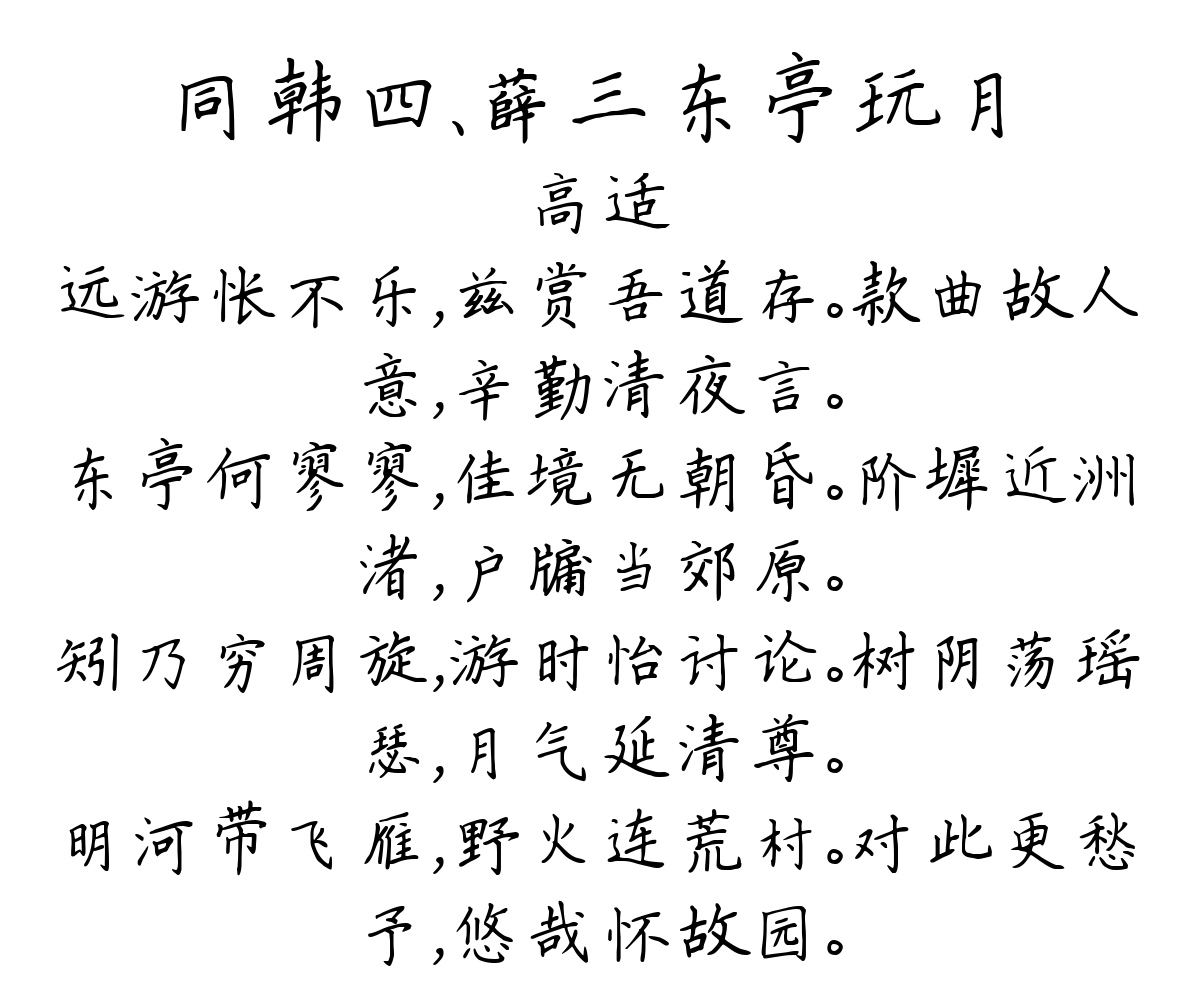 同韩四、薛三东亭玩月
高适
远游怅不乐,兹赏吾道存。款曲故人
意,辛勤清夜言。
东亭何寥寥,佳境无朝昏。阶墀近洲
渚,户牖当郊原。
矧乃穷周旋,游时怡讨论。树阴荡瑶
瑟,月气延清尊。
明河带飞雁,野火连荒村。对此更愁
予,悠哉怀故园。